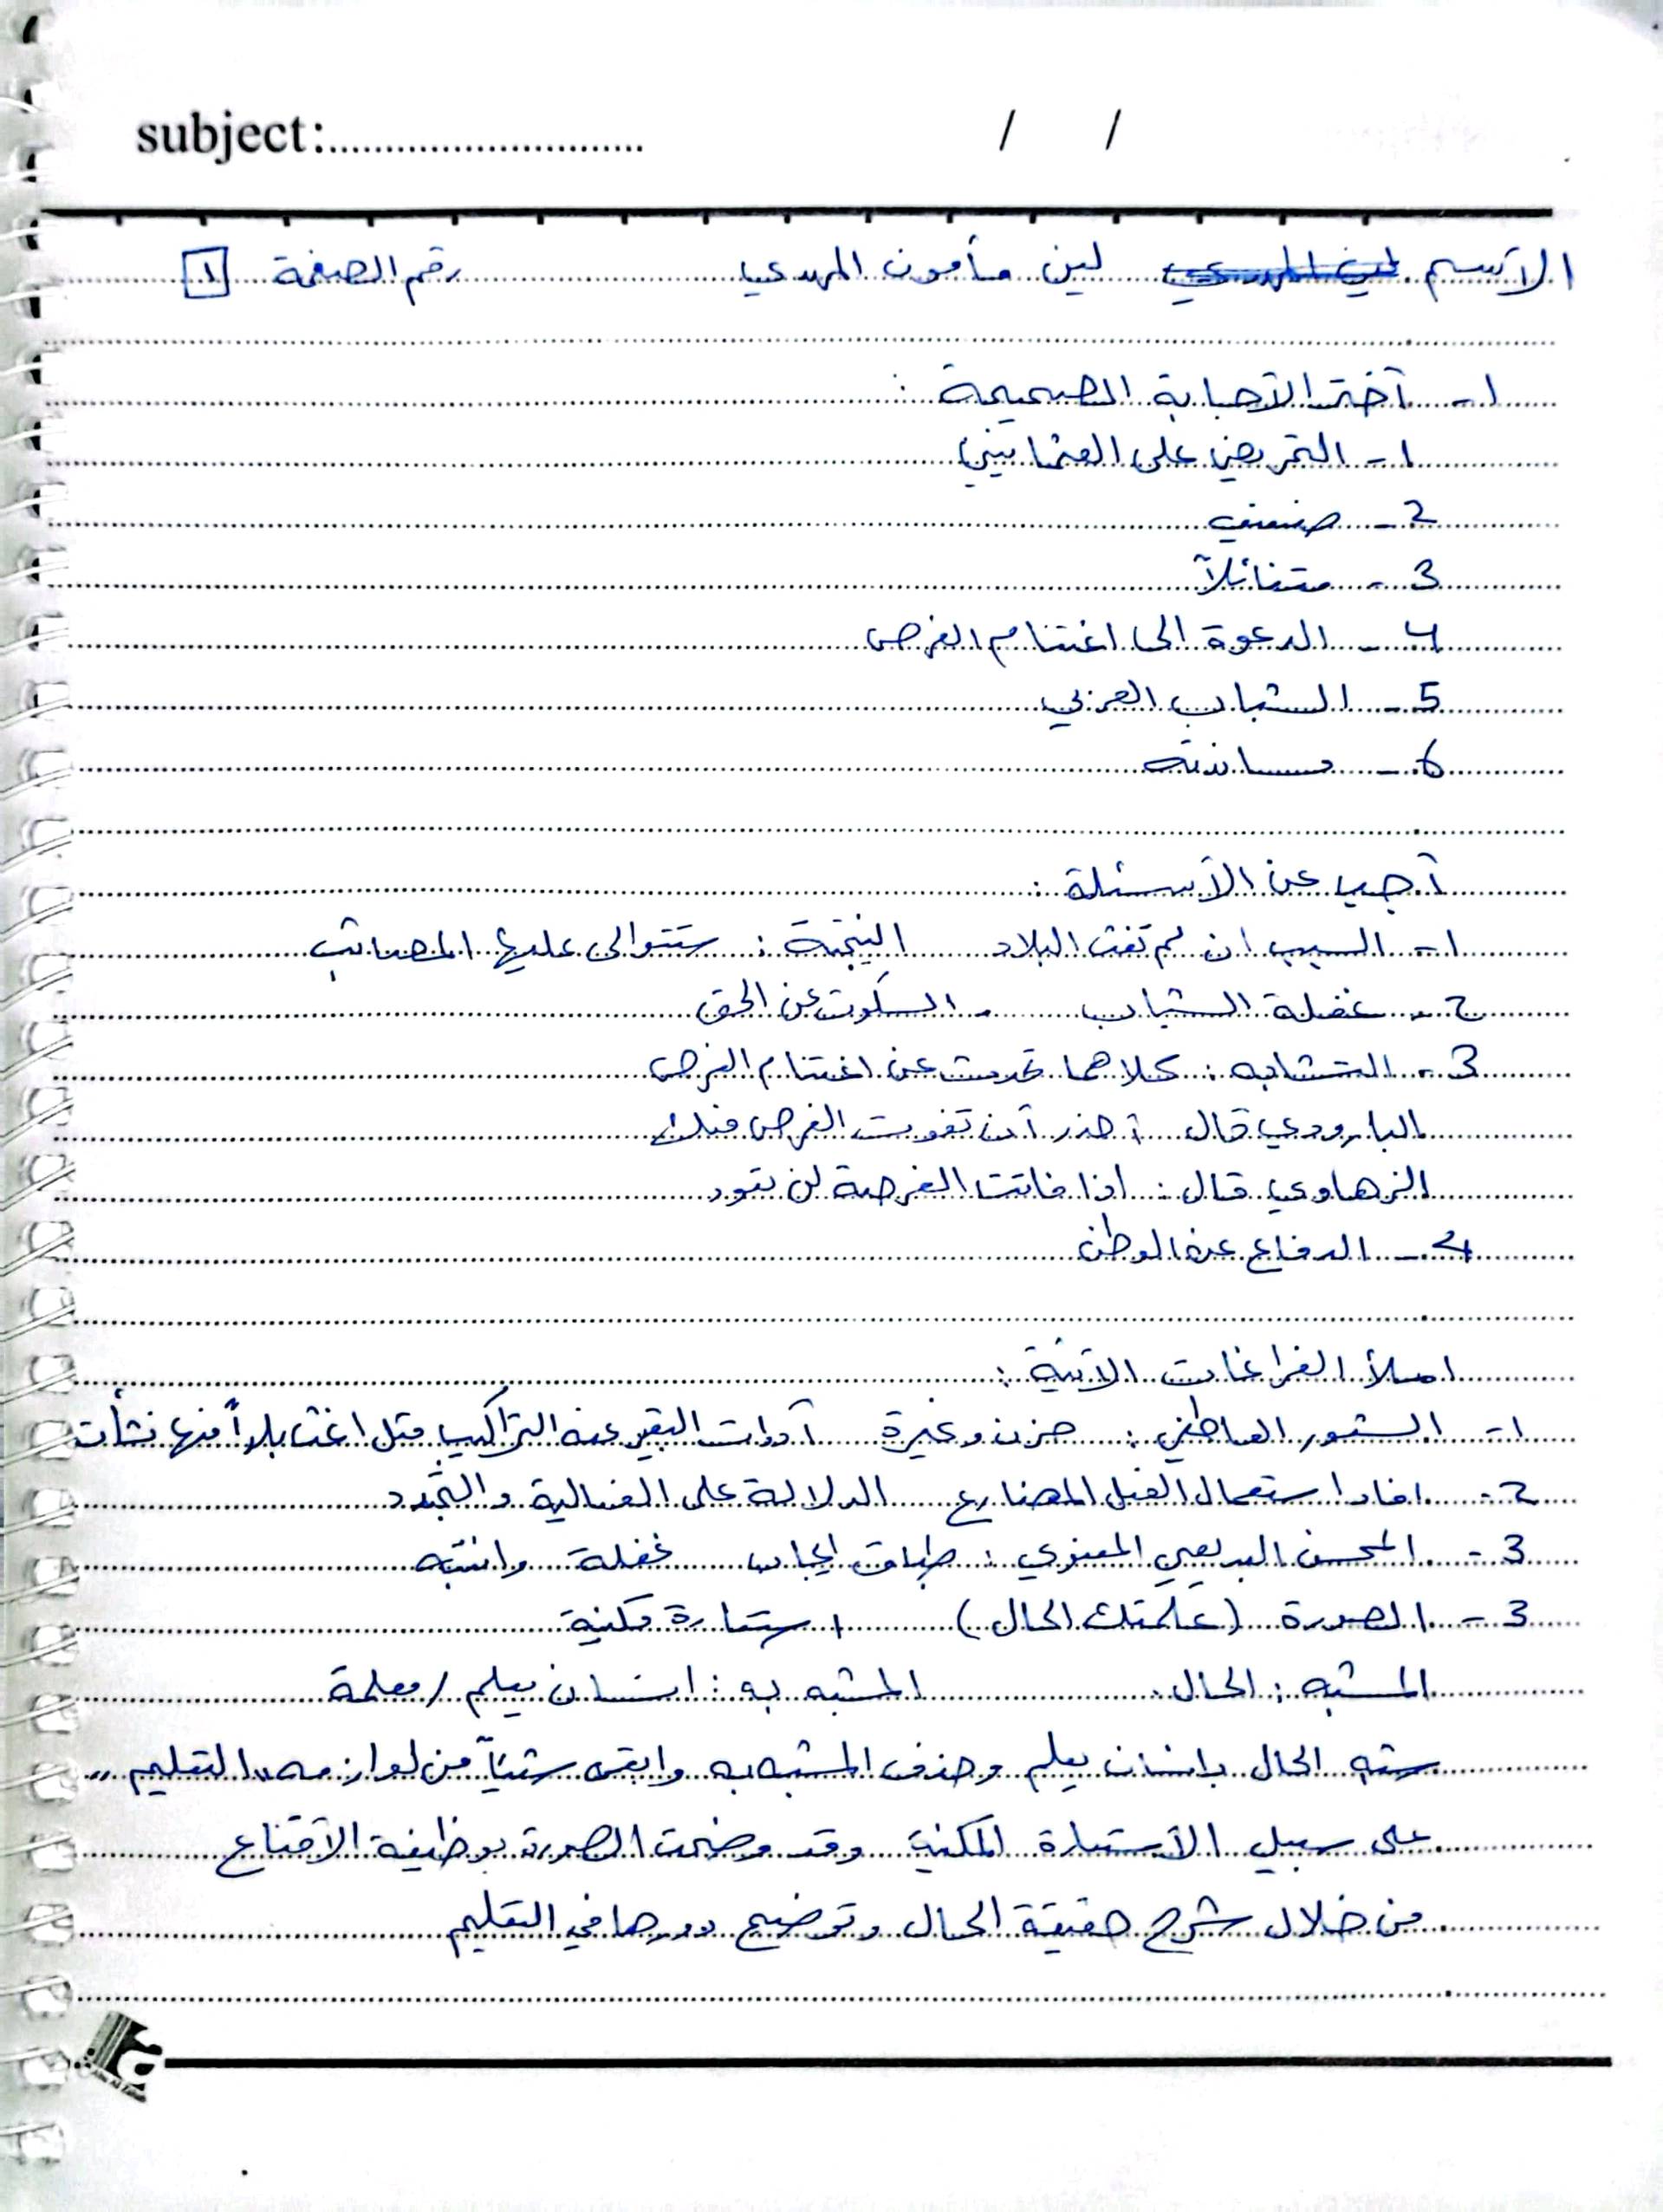 subject:............................ / /
الأسم لين مأمون المهدي رقم الصفحة 1
1- أختر الأجابة الصحيحة :
1- التحريض على العثمانيين
2- ضعف
3- متفائلاً
4- الدعوة الى اغتنام الفرص
5- الشباب العربي
6- مساندته
أجب عن الأسئلة :
1- السبب ان لم تغث البلاد النتيجة : ستتوالى عليها المصائب
2- غفلة الشباب - السكوت عن الحق
3- التشابه : كلاهما تحدث عن اغتنام الفرص
البارودي قال أحذر أن تفوت الفرص منك
الزهاوي قال : اذا فاتت الفرصة لن تعود
4- الدفاع عن الوطن
املأ الفراغات الآتية :
1- الشعور العاطفي : حزن وغيرة أدوات التعبير عنه التراكيب مثل اغث بلاداً منها نشأت
2- افاد استعمال الفعل المضارع الدلالة على الفعالية والتجدد
3- المحسن البديعي المعنوي : طباق ايجاب غفلة وانتبه
3- الصورة (علمتك الحال) استعارة مكنية
المشبه : الحال المشبه به : انسان يعلم / معلمة
شبه الحال بانسان يعلم وحذف المشبه به وابقى شيئاً من لوازمه "التعليم"
على سبيل الأستعارة المكنية وقد وضحت الصورة بوظيفة الأقناع
من خلال شرح حقيقة الحال وتوضيح دورها في التعليم